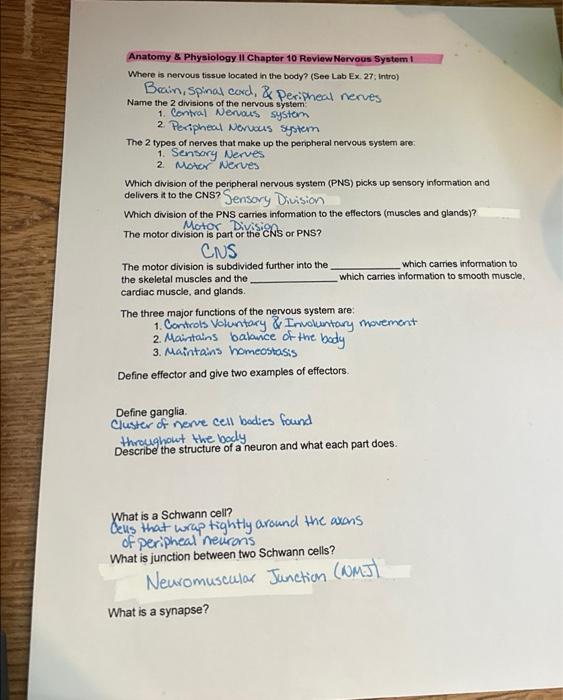 Anatomy & Physiology II Chapter 10 Review Nervous System I
Where is nervous tissue located in the body? (See Lab Ex. 27; Intro)
Brain, spinal cord, & Peripheal nerves
Name the 2 divisions of the nervous system:
1. Central Nervous system
2. Peripheal Nervous system
The 2 types of nerves that make up the peripheral nervous system are:
1. Sensory Nerves
2. Motor Nerves
Which division of the peripheral nervous system (PNS) picks up sensory information and
delivers it to the CNS? Sensory Division
Which division of the PNS carries information to the effectors (muscles and glands)?
Motor Division
The motor division is part of the CNS or PNS?
CNS
The motor division is subdivided further into the ____________ which carries information to
the skeletal muscles and the ______________ which carries information to smooth muscle,
cardiac muscle, and glands.
The three major functions of the nervous system are:
1. Controls Voluntary & Involuntary movement
2. Maintains balance of the body
3. Maintains homeostasis
Define effector and give two examples of effectors.
Define ganglia.
Cluster of nerve cell bodies found
throughout the body
Describe the structure of a neuron and what each part does.
What is a Schwann cell?
Cells that wrap tightly around the axons
of peripheal neurons
What is junction between two Schwann cells?
Neuromuscular Junction (NMJ)
What is a synapse?